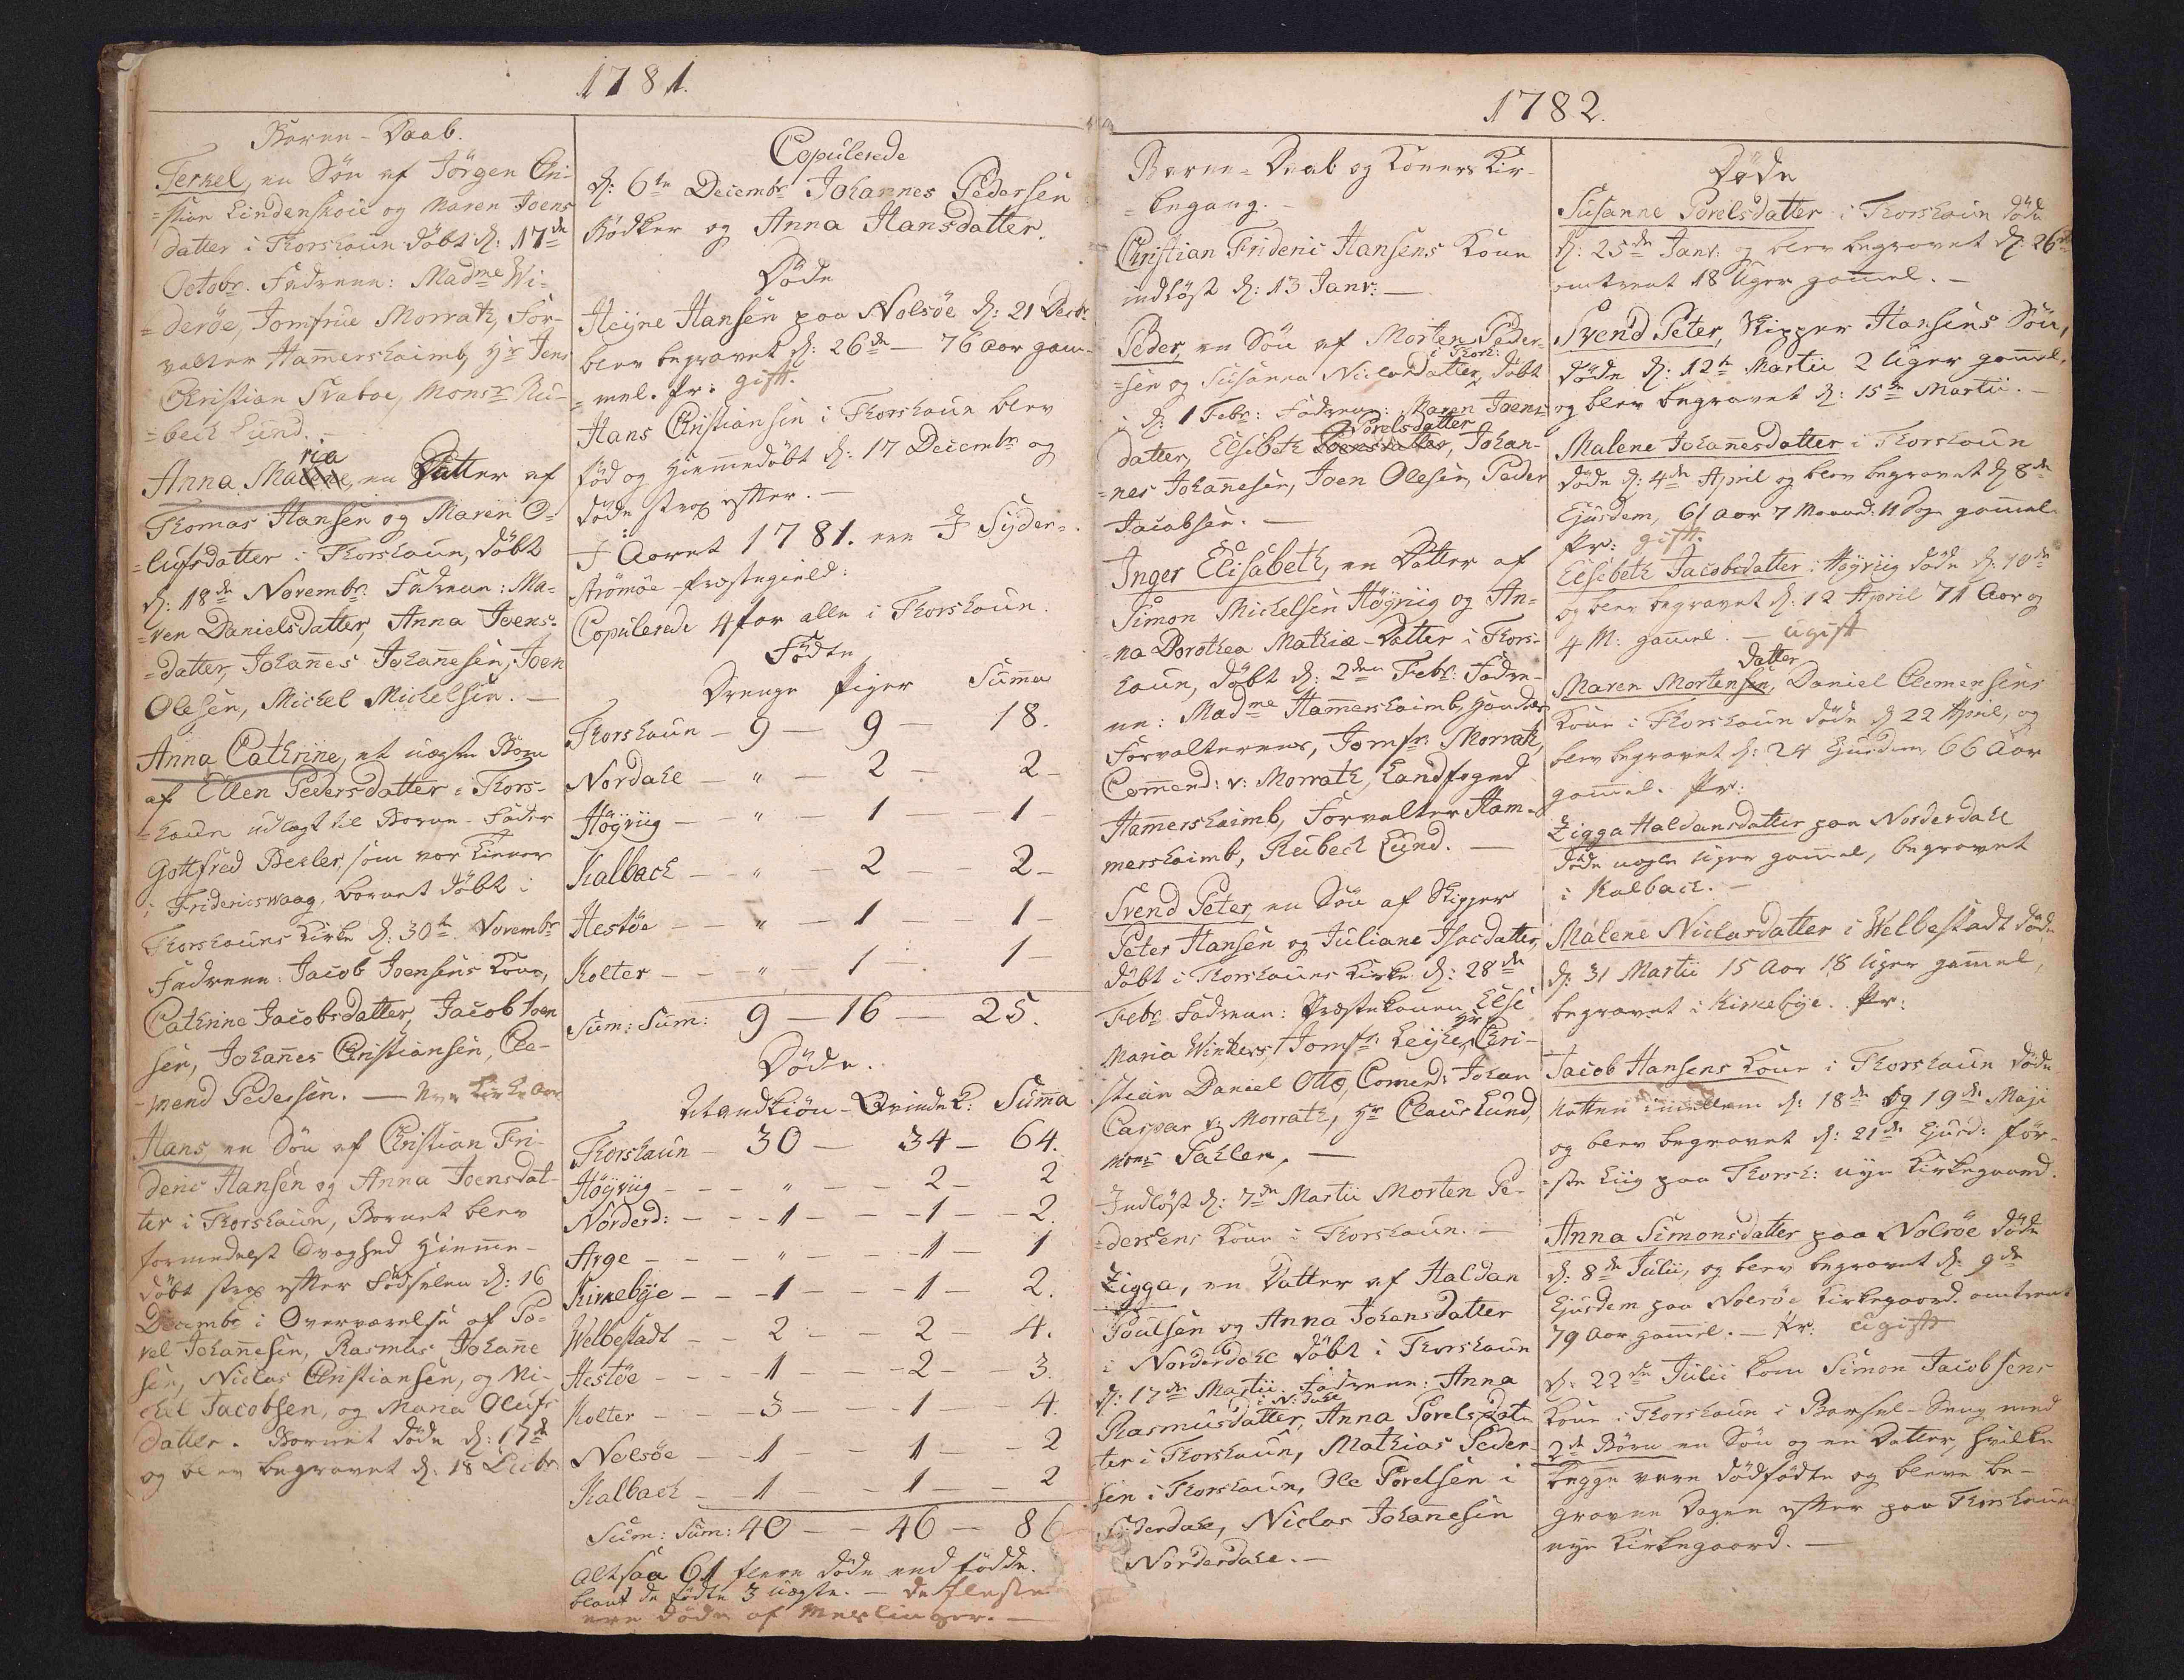 1781.
Børne-Daab.
Terkel, en Søn af Jørgen Chri-
=stian Lindenskow og Maren Joens
datter i Thorshaun døbt d: 17de
Octobr. Faddrene: Madme Wi-
=derøe, Jomfrue Morrath, For-
valter Hammershaimb, Hr Jens
Christian Svaboe, Monsr Ru-
=bech Lund. -
ria
Anna Malene, en Datter af
Thomas Hansen og Maren O-
=lufsdatter i Thorshaun, døbt
d: 18de Novembr. Fadrene: Ma-
=ren Danielsdatter, Anna Joens-
=datter, Johannes Johannesen, Joen
Olesen, Michel Michelsen. -
Anna Cathrine, et uægte Barn
af Ellen Pedersdatter i Thors-
=haun udlagt til Barne-Fader
Gottfred Besler, som var tienner
i Fridericswaag, barnet døbt i
Thorshauns Kirke d: 30te Novembr
Fadrene: Jacob Joensens Kone,
Cathrine Jacobsdatter, Jacob Joen
sen, Johannes Christiansen, Cle-
-mend Pedersen. - Nye Kirke Aar
Hans, en Søn af Christian Fri-
deric Hansen og Anna Joensdat-
ter i Thorshaun, Barnet blev
formedelst Svaghed Hiemme-
døbt strax efter Fødselen d: 16
Decembr i Overværelse af Po-
vel Johannesen, Rasmus Johanne
sen, Niclas Christiansen, og Mi-
chel Jacobsen, og Maria Olufs
datter. Barnet døde d: 17de
og blev begravet d: 18 Decbr.
Copulerede
d: 6te Decembr Johannes Pedersen
Bødker og Anna Hansdatter.
Døde
Heyne Hansen paa Nolsøe d: 21 Decbr
blev begravet d: 26de - 76 Aar gam-
=mel. Pr: gift.
Hans Christiansen i Thorshaun blev
fød og Hiemmedøbt d: 17 Decembr og
døde strax efter. -
I Aaret 1781. ere I Syder-
strömöe Præstegield:
Copulerede 4 par alle i Thorshaun.
Fødte
Drenge Piger Summa
Thorshaun - 9 - 9 - 18.
Nordahl - " - 2 - 2 -
Høyviig - " - 1 - 1
Kalbach - " - 2 - 2 -
Hestøe - " - 1 - 1 -
Kolter - " - 1 - 1 -
Sum: Sum: 9 - 16 - 25.
Døde.
Mandkiøn - Qvindek: Summa
Thorshaun - 30 - 34 - 64.
Høyviig - " - 2 - 2
Norderd: - 1 - 1 - 2.
Arge - " - 1 - 1
Kirkebye - 1 - 1 - 2.
Welbestadt - 2 - 2 - 4.
Hestøe - 1 - 2 - 3.
Kolter - 3 - 1 - 4.
Nolsøe - 1 - 1 - 2
Kalbach - 1 - 1 - 2
Sum: Sum: 40 - 46 - 86
Altsaa 61 flere døde end fødde.
blant de fødte 3 uægte. - De fleste
ere døde af Meslinger. -
1782.
Børne-Daab og Koners Kir-
=kegang. -
Christian Frideric Hansens Kone
indløst d: 13 Janr: -
Peder, en Søn af Morten Peder-
i Thorsh:
=sen og Susanna Niclasdatter, døbt
d: 1 Febr: Fadrene: Maren Joens-
Porelsdatter
datter, Elsebeth Joensdatter, Johan-
=nes Johannesen, Joen Olesen, Peder
Jacobsen. -
Inger Elisabeth, en Datter af
Simon Michelsen Høyviig og An-
=na Dorothea Mathiæ-Datter i Thors-
haun, døbt d: 2den Febr: Fadre-
ne: Madme Hammershaimb,
Forvalterens, Jomfr: Morrath,
Commend: v: Morrath, Landfoged
Hammershaimb, Forvalter Ham-
mershaimb, Rubech Lund. -
Svend Peter, en Søn af Skipper
Peter Hansen og Juliane Isacdatter,
døbt i Thorshauns Kirke d: 28de
Febr Fadrene: Præstekonen Else
Hr
Maria Winthers, Jomfr: Leyhe, Chri-
stian Daniel Otto, Comend: Johan
Caspar v: Morrath, Hr Claus Lund,
Monsr Sahlen. -
Indløst d: 7de Martii Morten Pe-
=dersens Kone i Thorshaun. -
Zigga, en Datter af Haldan
Poulsen og Anna Johansdatter
i Norderdahl døbt i Thorshaun
d: 17de Martii. Fadrene: Anna
i N: Dahl
Rasmusdatter, Anna Porelsdat-
ter i Thorshaun, Mathias Peder-
sen i Thorshaun, Ole Porelsen i
Siderdahl, Niclas Johannesen
Norderdahl. -
Døde
Susanne Porelsdatter i Thorshaun døde
d: 25de Janr: og blev begravet d: 26de
omtrent 18 Uger gammel. -
Svend Peter, Skipper Hansens Søn,
døde d: 12te Martii 2 Uger gammel,
og blev begravet d: 15de Martii. -
Malene Johannesdatter i Thorshaun
døde d: 4de April og blev begravet d 8de
Ejusdem, 61 Aar 7 Maaned: 11 Dage gammel
Pr: gift.
Elsebeth Jacobsdatter i Høyviig døde d: 10de
og blev begravet d: 12 April 71 Aar og
4 M: gammel. - ugift
datter
Maren Mortensen, Daniel Clemensens
Kone i Thorshaun døde d 22 April, og
blev begravet d: 24 Ejusdem 66 Aar
gammel. Pr:
Zigga Haldansdatter paa Norderdahl
døde nogle Uger gammel, begravet
i Kalbach. -
Malene Niclasdatter i Welbestadt døde
d: 31 Martii 15 Aar 18 Uger gammel,
begravet i Kirkebye. Pr:
Jacob Hansens Kone i Thorshaun døde
Natten imellem d: 18de og 19de Maji
og blev begravet d: 21de Ejusd: før-
=ste Liig paa Thorsh: nye Kirkegaard.
Anna Simonsdatter paa Nolsøe døde
d: 8de Julii, og blev begravet d: 9de
Ejusdem paa Nolsøe Kirkegaard. omtrent
79 Aar gammel. - Pr: ugift
d: 22de Julii kom Simon Jacobsens
Kone i Thorshaun i Barsel-Seng med
2de Børn en Søn og en Datter, hvilke
begge vare dødfødte og bleve be-
gravne Dagen efter paa Thorshauns
nye Kirkegaard. -